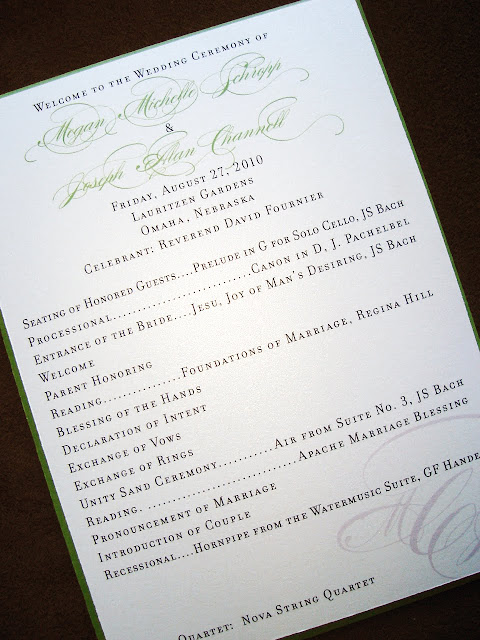 Welcome to the Wedding Ceremony of
Megan Michelle Schropp
&
Joseph Alan Channell
Friday, August 27, 2010
Lauritzen Gardens
Omaha, Nebraska
Celebrant: Reverend David Fournier
Seating of Honored Guests....Prelude in G for Solo Cello, JS Bach
Processional..........................Canon in D, J. Pachelbel
Entrance of the Bride....Jesu, Joy of Man's Desiring, JS Bach
Welcome
Parent Honoring
Reading...............Foundations of Marriage, Regina Hill
Blessing of the Hands
Declaration of Intent
Exchange of Vows
Exchange of Rings
Unity Sand Ceremony...........Air from Suite No. 3, JS Bach
Reading. ............................Apache Marriage Blessing
Pronouncement of Marriage
Introduction of Couple
Recessional....Hornpipe from the Watermusic Suite, GF Hande
Quartet: Nova String Quartet